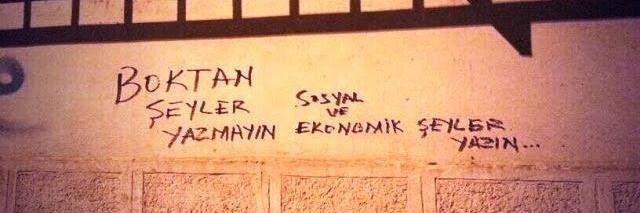 BOKTAN
ŞEYLER
YAZMAYIN
SOSYAL
VE
EKONOMİK ŞEYLER
YAZIN...